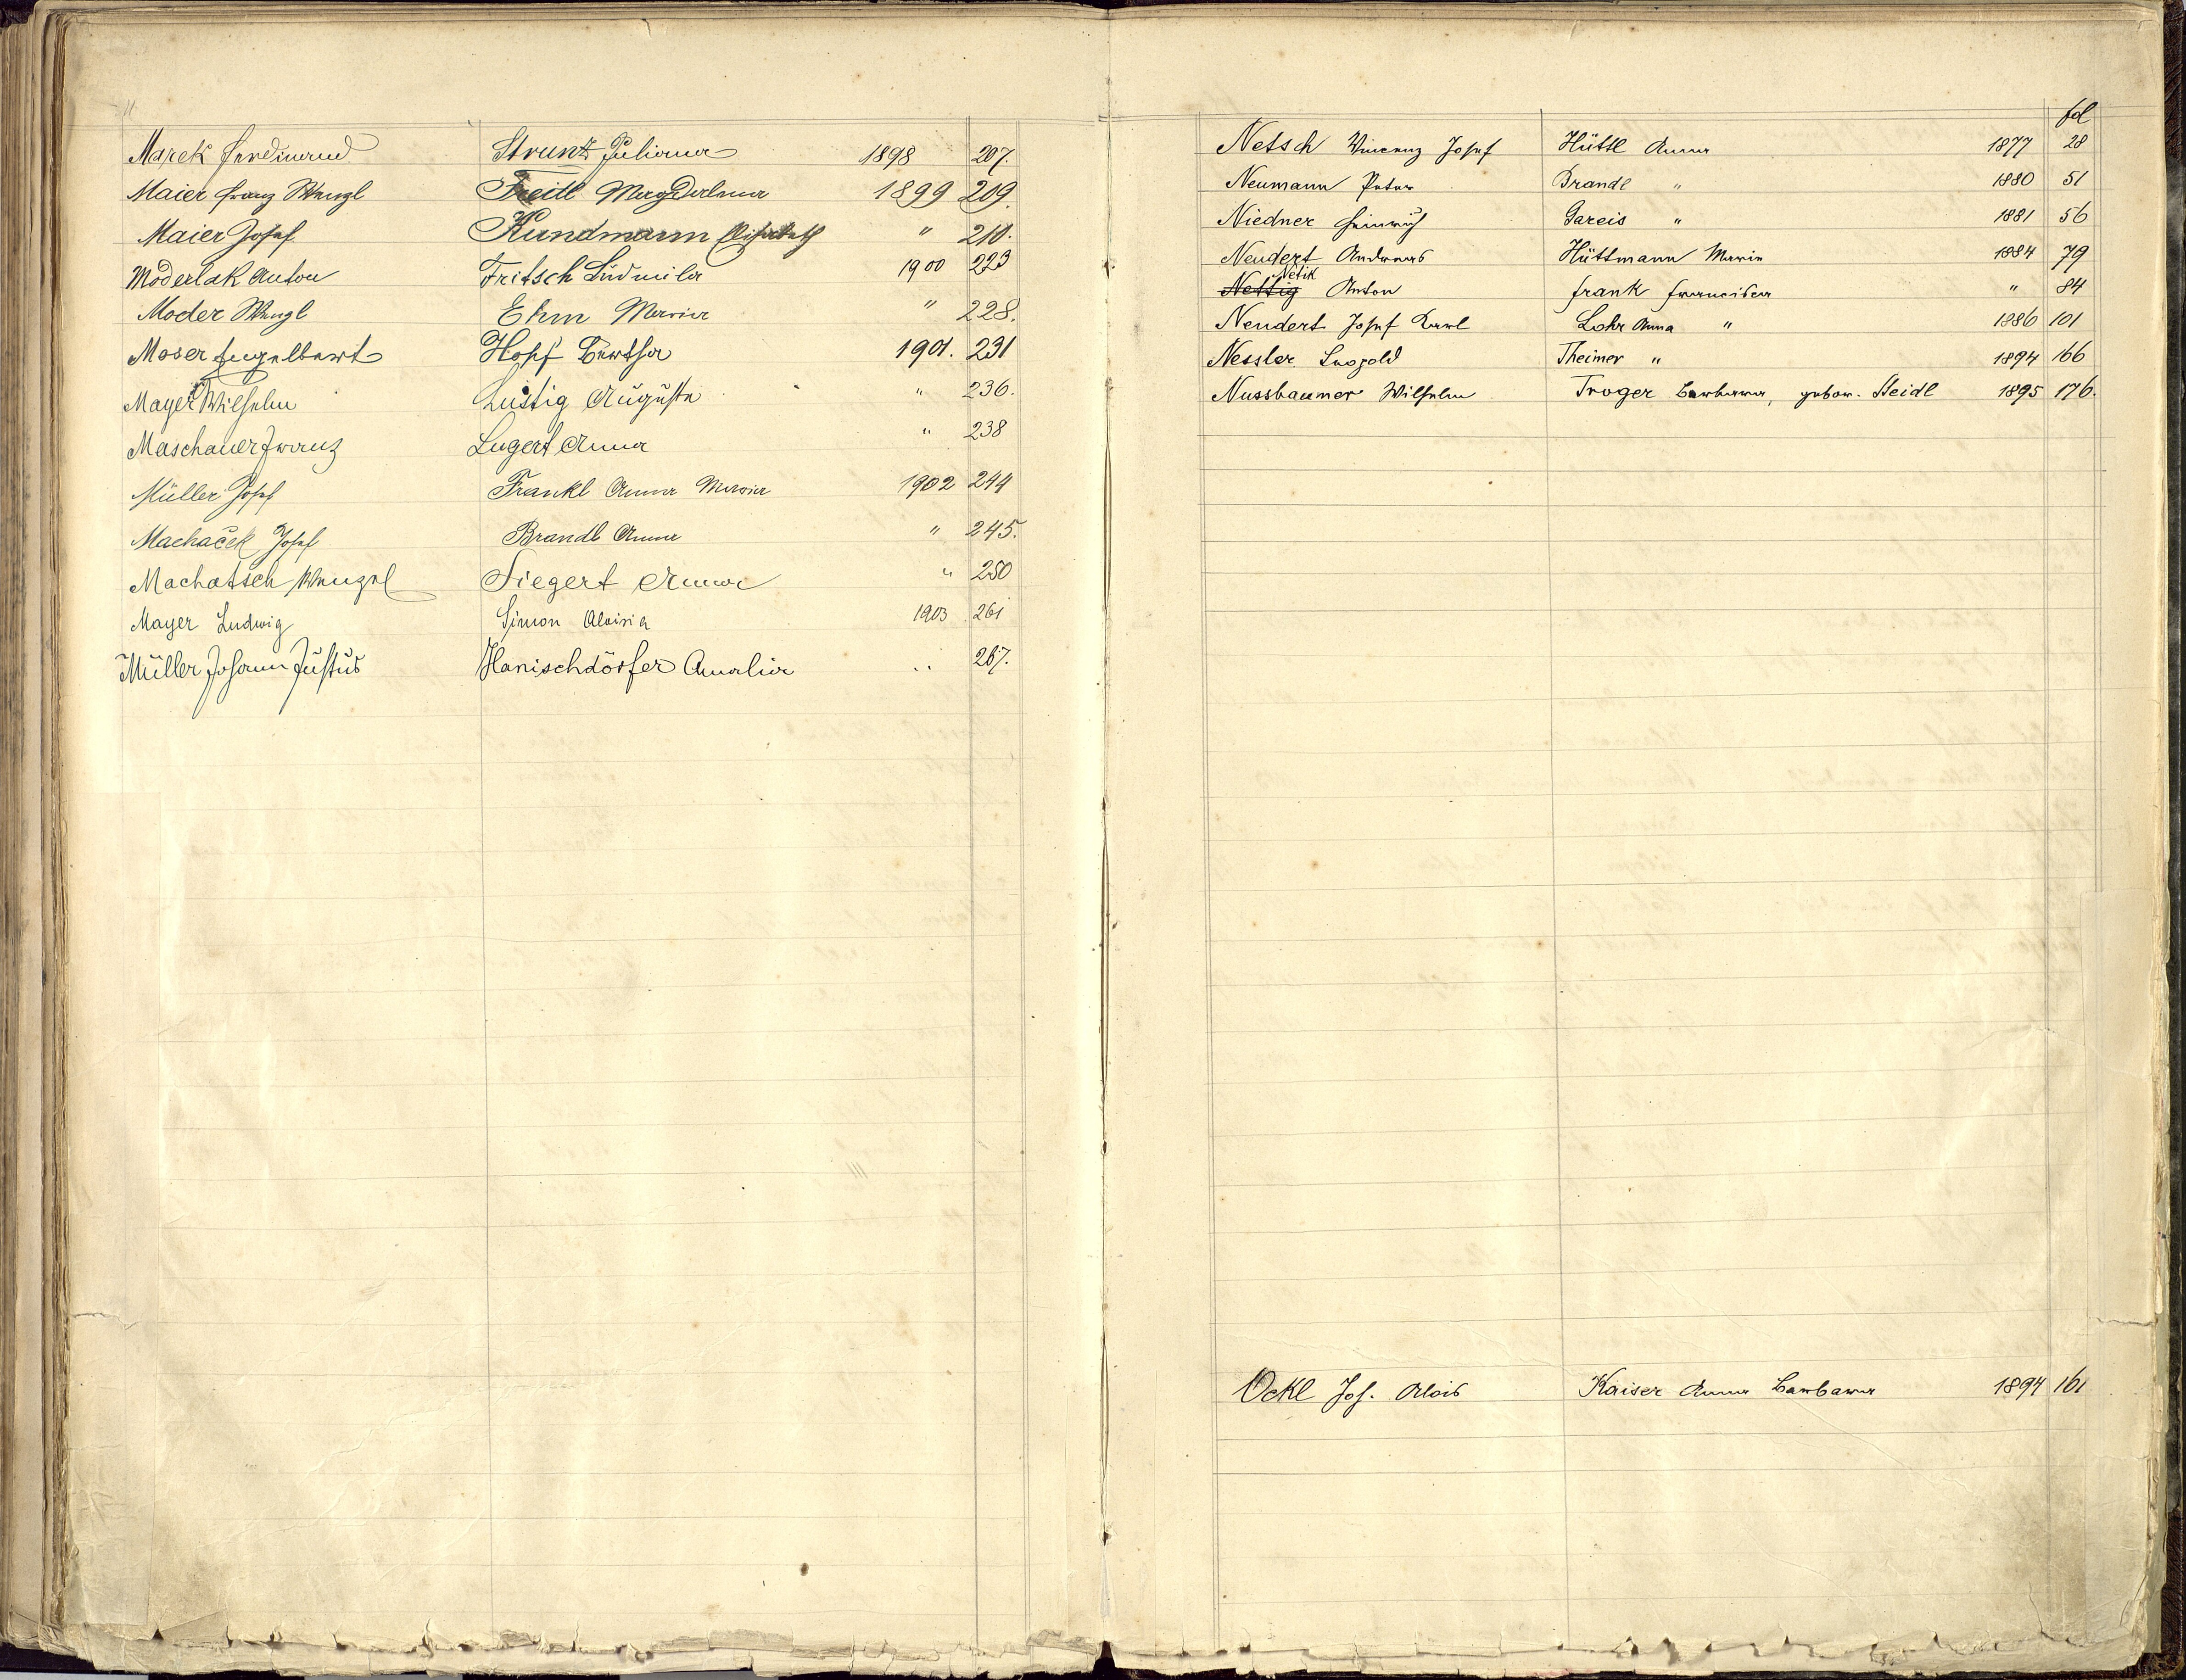 Marek Ferdinand Strunz Juliana 1898 207.
Maier Franz Wenzl Freidl Magdalena 1899 209.
Maier Josef Kundmann Elisabeth " 210.
Moderlak Anton Fritsch Ludmila 1900 223
Moder Wenzl Ehm Maria " 228.
Moser Engelbert Hopf Bertha 1901. 231
Mayer Wilhelm Lustig Auguste " 236.
Maschauer Franz Lugert Anna " 238
Müller Josef Frankl Anna Maria 1902 244
Machaček Josef Brandl Anna " 245.
Machatsch Wenzel Siegert Anna " 250
Mayer Ludwig Simon Aloisia 1903 261
Müller Johann Justus Hanischdörfer Amalia " 267.
fol
Netsch Vincenz Josef Hüttl Anna 1877 28
Neumann Peter Brandl " 1880 51
Niedner Heinrich Gareis " 1881 56
Neudert Andreas Hüttmann Maria 1884 79
Netik
Nettig Anton Frank Francisca " 84
Neudert Josef Karl Lohr Anna " 1886 101
Nessler Leopold Theimer " 1894 166
Nussbaumer Wilhelm Troger Barbara, gebor. Heidl 1895 176.
Ockl Jos. Alois Kaiser Anna Barbara 1894 161